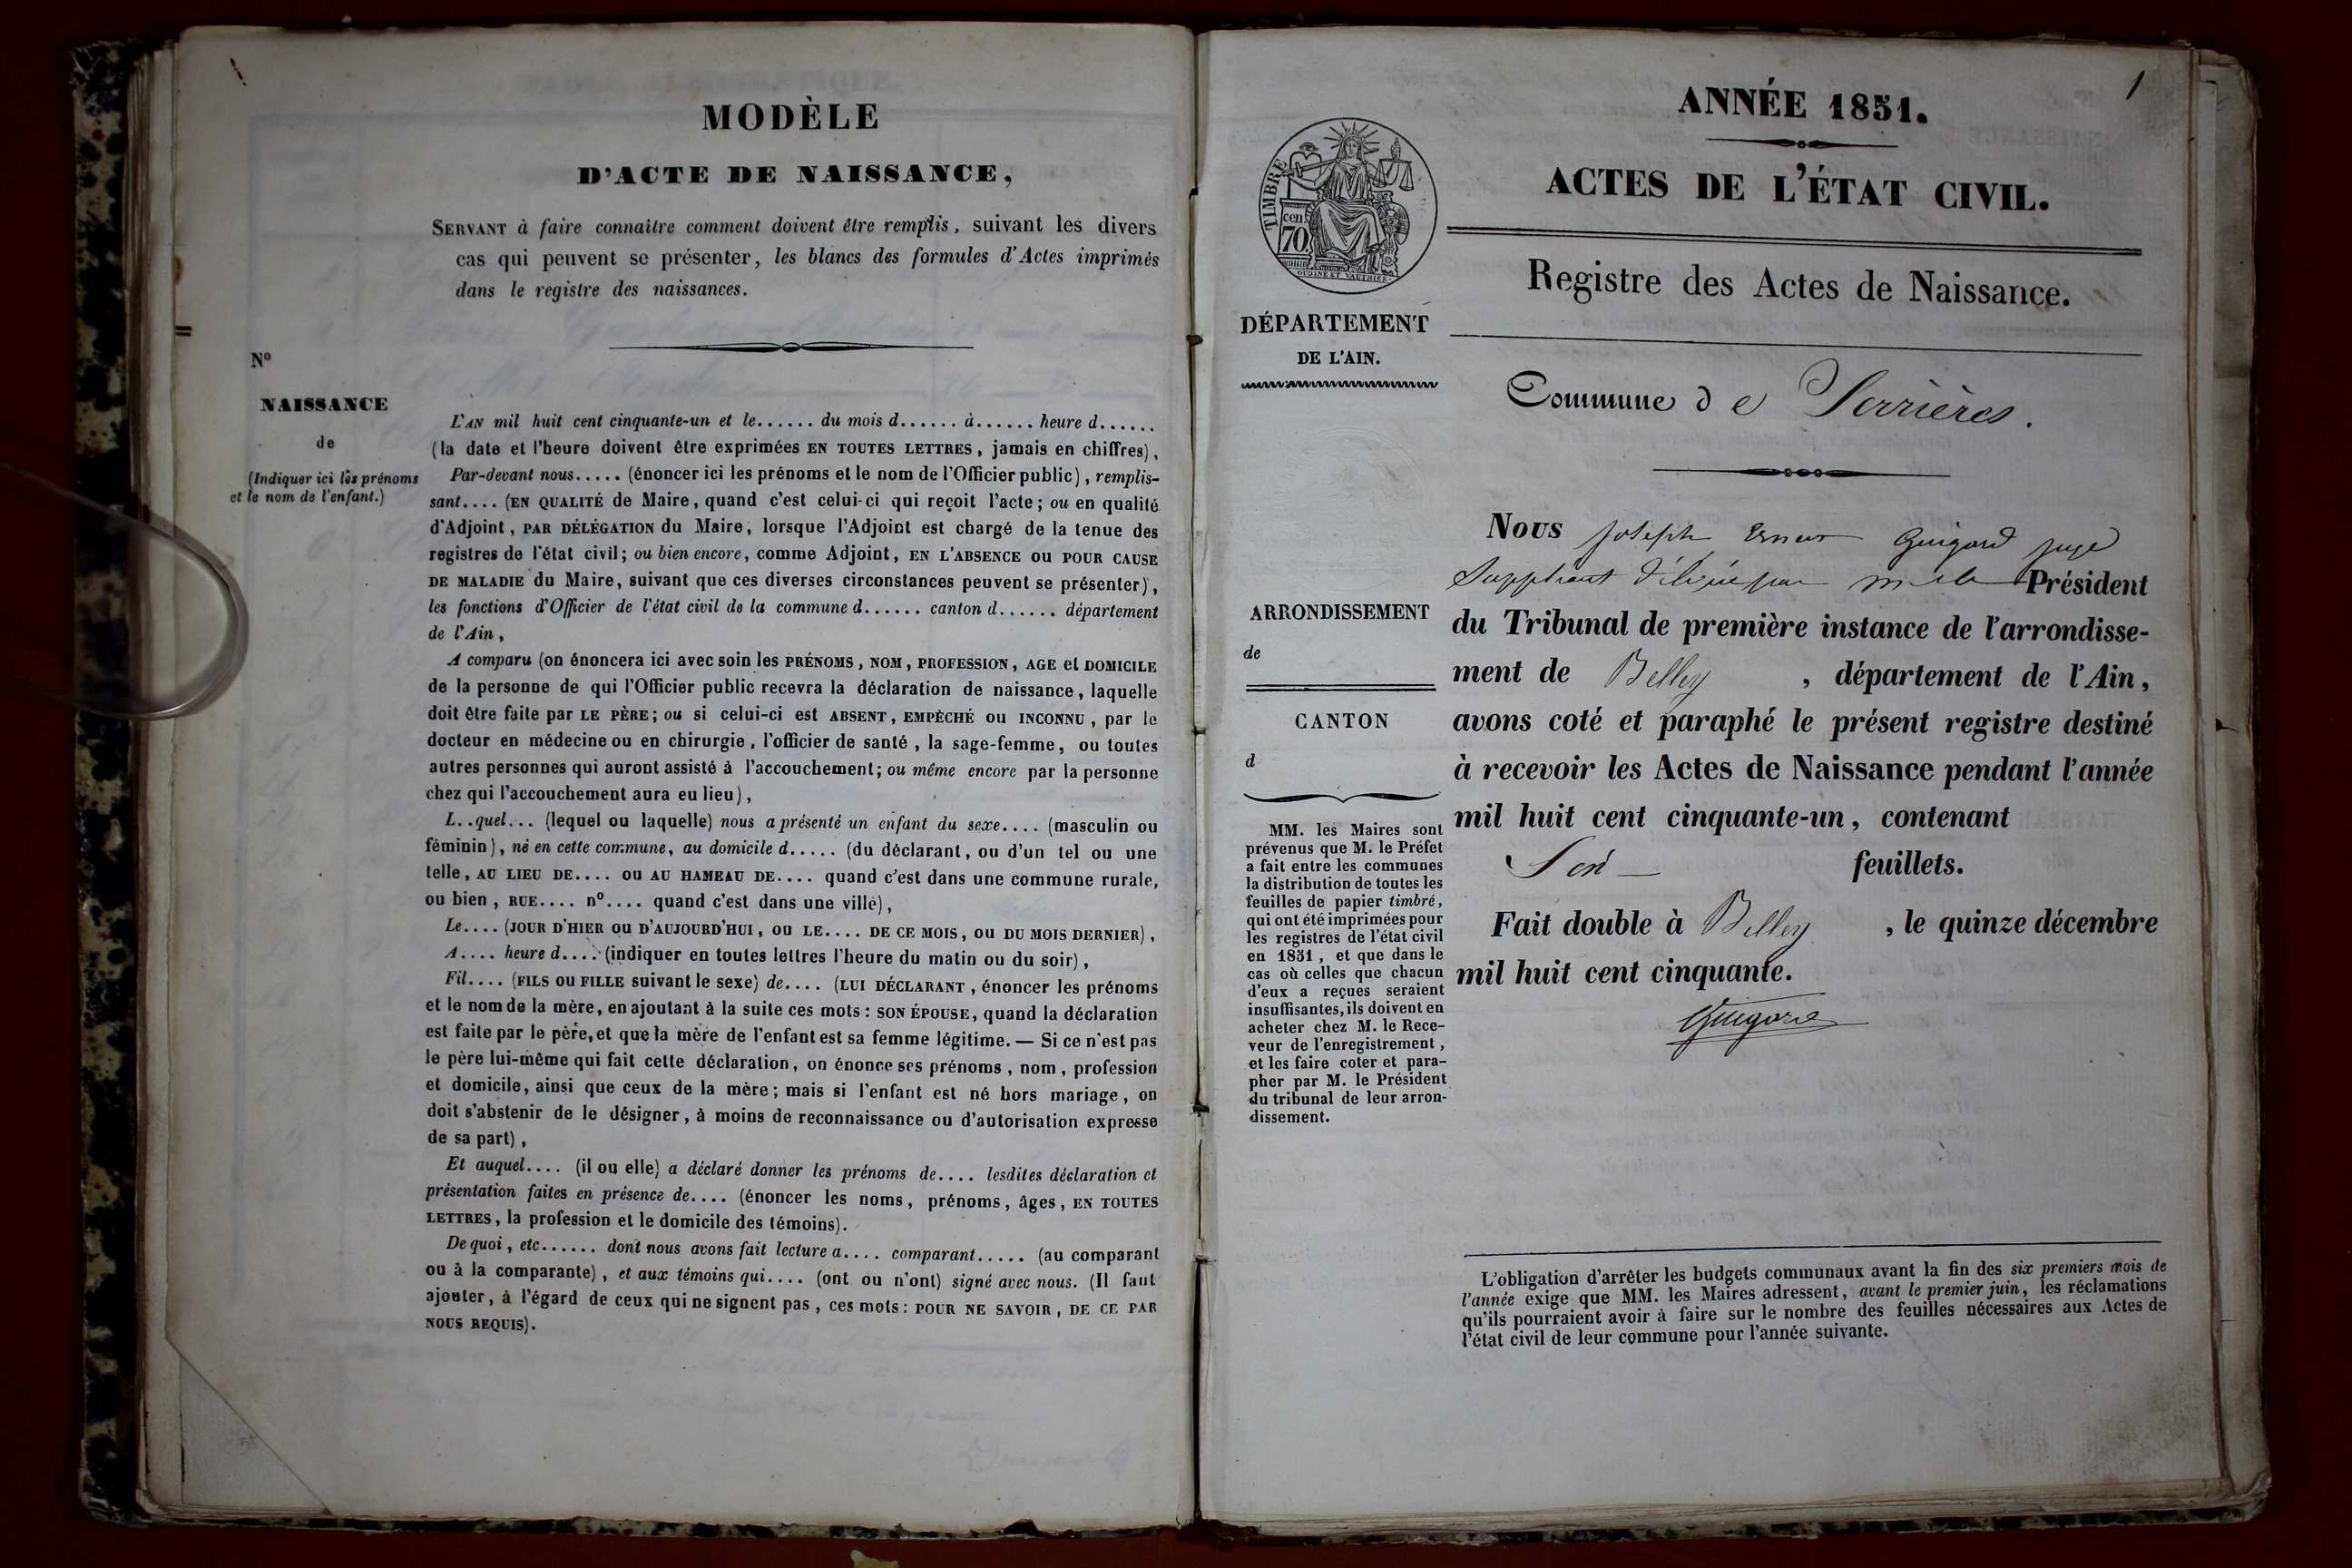 MODÈLE
D'ACTE DE NAISSANCE,
SERVANT à faire connaître comment doivent être remplis, suivant les divers
cas qui peuvent se présenter, les blancs des formules d'Actes imprimés
dans le registre des naissances.
N°
NAISSANCE
de
(Indiquer ici les prénoms
et le nom de l'enfant.)
L'AN mil huit cent cinquante-un et le...... du mois d...... à...... heure d......
(la date et l'heure doivent être exprimées EN TOUTES LETTRES, jamais en chiffres),
Par-devant nous..... (énoncer ici les prénoms et le nom de l'Officier public), remplis-
sant.... (EN QUALITÉ de Maire, quand c'est celui-ci qui reçoit l'acte; ou en qualité
d'Adjoint, PAR DÉLÉGATION du Maire, lorsque l'Adjoint est chargé de la tenue des
registres de l'état civil; ou bien encore, comme Adjoint, EN L'ABSENCE OU POUR CAUSE
DE MALADIE du Maire, suivant que ces diverses circonstances peuvent se présenter),
les fonctions d'Officier de l'état civil de la commune d...... canton d...... département
de l'Ain,
A comparu (on énoncera ici avec soin les PRÉNOMS, NOM, PROFESSION, AGE et DOMICILE
de la personne de qui l'Officier public recevra la déclaration de naissance, laquelle
doit être faite par LE PÈRE; ou si celui-ci est ABSENT, EMPÊCHÉ ou INCONNU, par le
docteur en médecine ou en chirurgie, l'officier de santé, la sage-femme, ou toutes
autres personnes qui auront assisté à l'accouchement; ou même encore par la personne
chez qui l'accouchement aura eu lieu),
L..quel... (lequel ou laquelle) nous a présenté un enfant du sexe.... (masculin ou
féminin), né en cette commune, au domicile d..... (du déclarant, ou d'un tel ou une
telle, AU LIEU DE.... OU AU HAMEAU DE.... quand c'est dans une commune rurale,
ou bien, RUE.... n°.... quand c'est dans une ville),
Le.... (JOUR D'HIER OU D'AUJOURD'HUI, OU LE.... DE CE MOIS, OU DU MOIS DERNIER),
A.... heure d.... (indiquer en toutes lettres l'heure du matin ou du soir),
Fil.... (FILS OU FILLE suivant le sexe) de.... (LUI DÉCLARANT, énoncer les prénoms
et le nom de la mère, en ajoutant à la suite ces mots: SON ÉPOUSE, quand la déclaration
est faite par le père, et que la mère de l'enfant est sa femme légitime. — Si ce n'est pas
le père lui-même qui fait cette déclaration, on énonce ses prénoms, nom, profession
et domicile, ainsi que ceux de la mère; mais si l'enfant est né hors mariage, on
doit s'abstenir de le désigner, à moins de reconnaissance ou d'autorisation expresse
de sa part),
Et auquel.... (il ou elle) a déclaré donner les prénoms de.... lesdites déclaration et
présentation faites en présence de.... (énoncer les noms, prénoms, âges, EN TOUTES
LETTRES, la profession et le domicile des témoins).
De quoi, etc...... dont nous avons fait lecture a.... comparant..... (au comparant
ou à la comparante), et aux témoins qui.... (ont ou n'ont) signé avec nous. (Il faut
ajouter, à l'égard de ceux qui ne signent pas, ces mots: POUR NE SAVOIR, DE CE PAR
NOUS REQUIS).
1
ANNÉE 1851.
ACTES DE L'ÉTAT CIVIL.
TIMBRE
cen
70
OUDINÉ ET VAUTHIER
Registre des Actes de Naissance.
DÉPARTEMENT
DE L'AIN.
Commune de Serrières.
ARRONDISSEMENT
de
CANTON
d
MM. les Maires sont
prévenus que M. le Préfet
a fait entre les communes
la distribution de toutes les
feuilles de papier timbré,
qui ont été imprimées pour
les registres de l'état civil
en 1851, et que dans le
cas où celles que chacun
d'eux a reçues seraient
insuffisantes, ils doivent en
acheter chez M. le Rece-
veur de l'enregistrement,
et les faire coter et para-
pher par M. le Président
du tribunal de leur arron-
dissement.
Nous Joseph Guigard juge
Suppléant Président
du Tribunal de première instance de l'arrondisse-
ment de Belley, département de l'Ain,
avons coté et paraphé le présent registre destiné
à recevoir les Actes de Naissance pendant l'année
mil huit cent cinquante-un, contenant
feuillets.
Fait double à Belley, le quinze décembre
mil huit cent cinquante.
L'obligation d'arrêter les budgets communaux avant la fin des six premiers mois de
l'année exige que MM. les Maires adressent, avant le premier juin, les réclamations
qu'ils pourraient avoir à faire sur le nombre des feuilles nécessaires aux Actes de
l'état civil de leur commune pour l'année suivante.